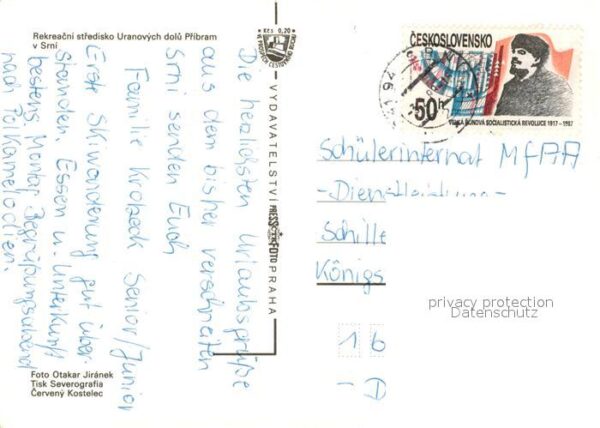 Rekreační středisko Uranových dolů Příbram
v Srní
Kčs 0,20
VYDAVATELSTVÍ PRESSFOTO PRAHA
Die herzlichsten Urlaubsgrüße
aus dem bisher verschneiten
Srni senden Euch
Familie Krotzeck Senior/Junior
Erste Skiwanderung gut über-
standen. Essen u. Unterkunft
bestens. Montag Begrüßungsabend
nach Polkamelodien.
Foto Otakar Jiránek
Tisk Severografia
Červený Kostelec
ČESKOSLOVENSKO
50h
VELKÁ ŘÍJNOVÁ SOCIALISTICKÁ REVOLUCE 1917-1987
Schülerinternat MfAA
Schille
Königs
privacy protection
Datenschutz
1 6
- D